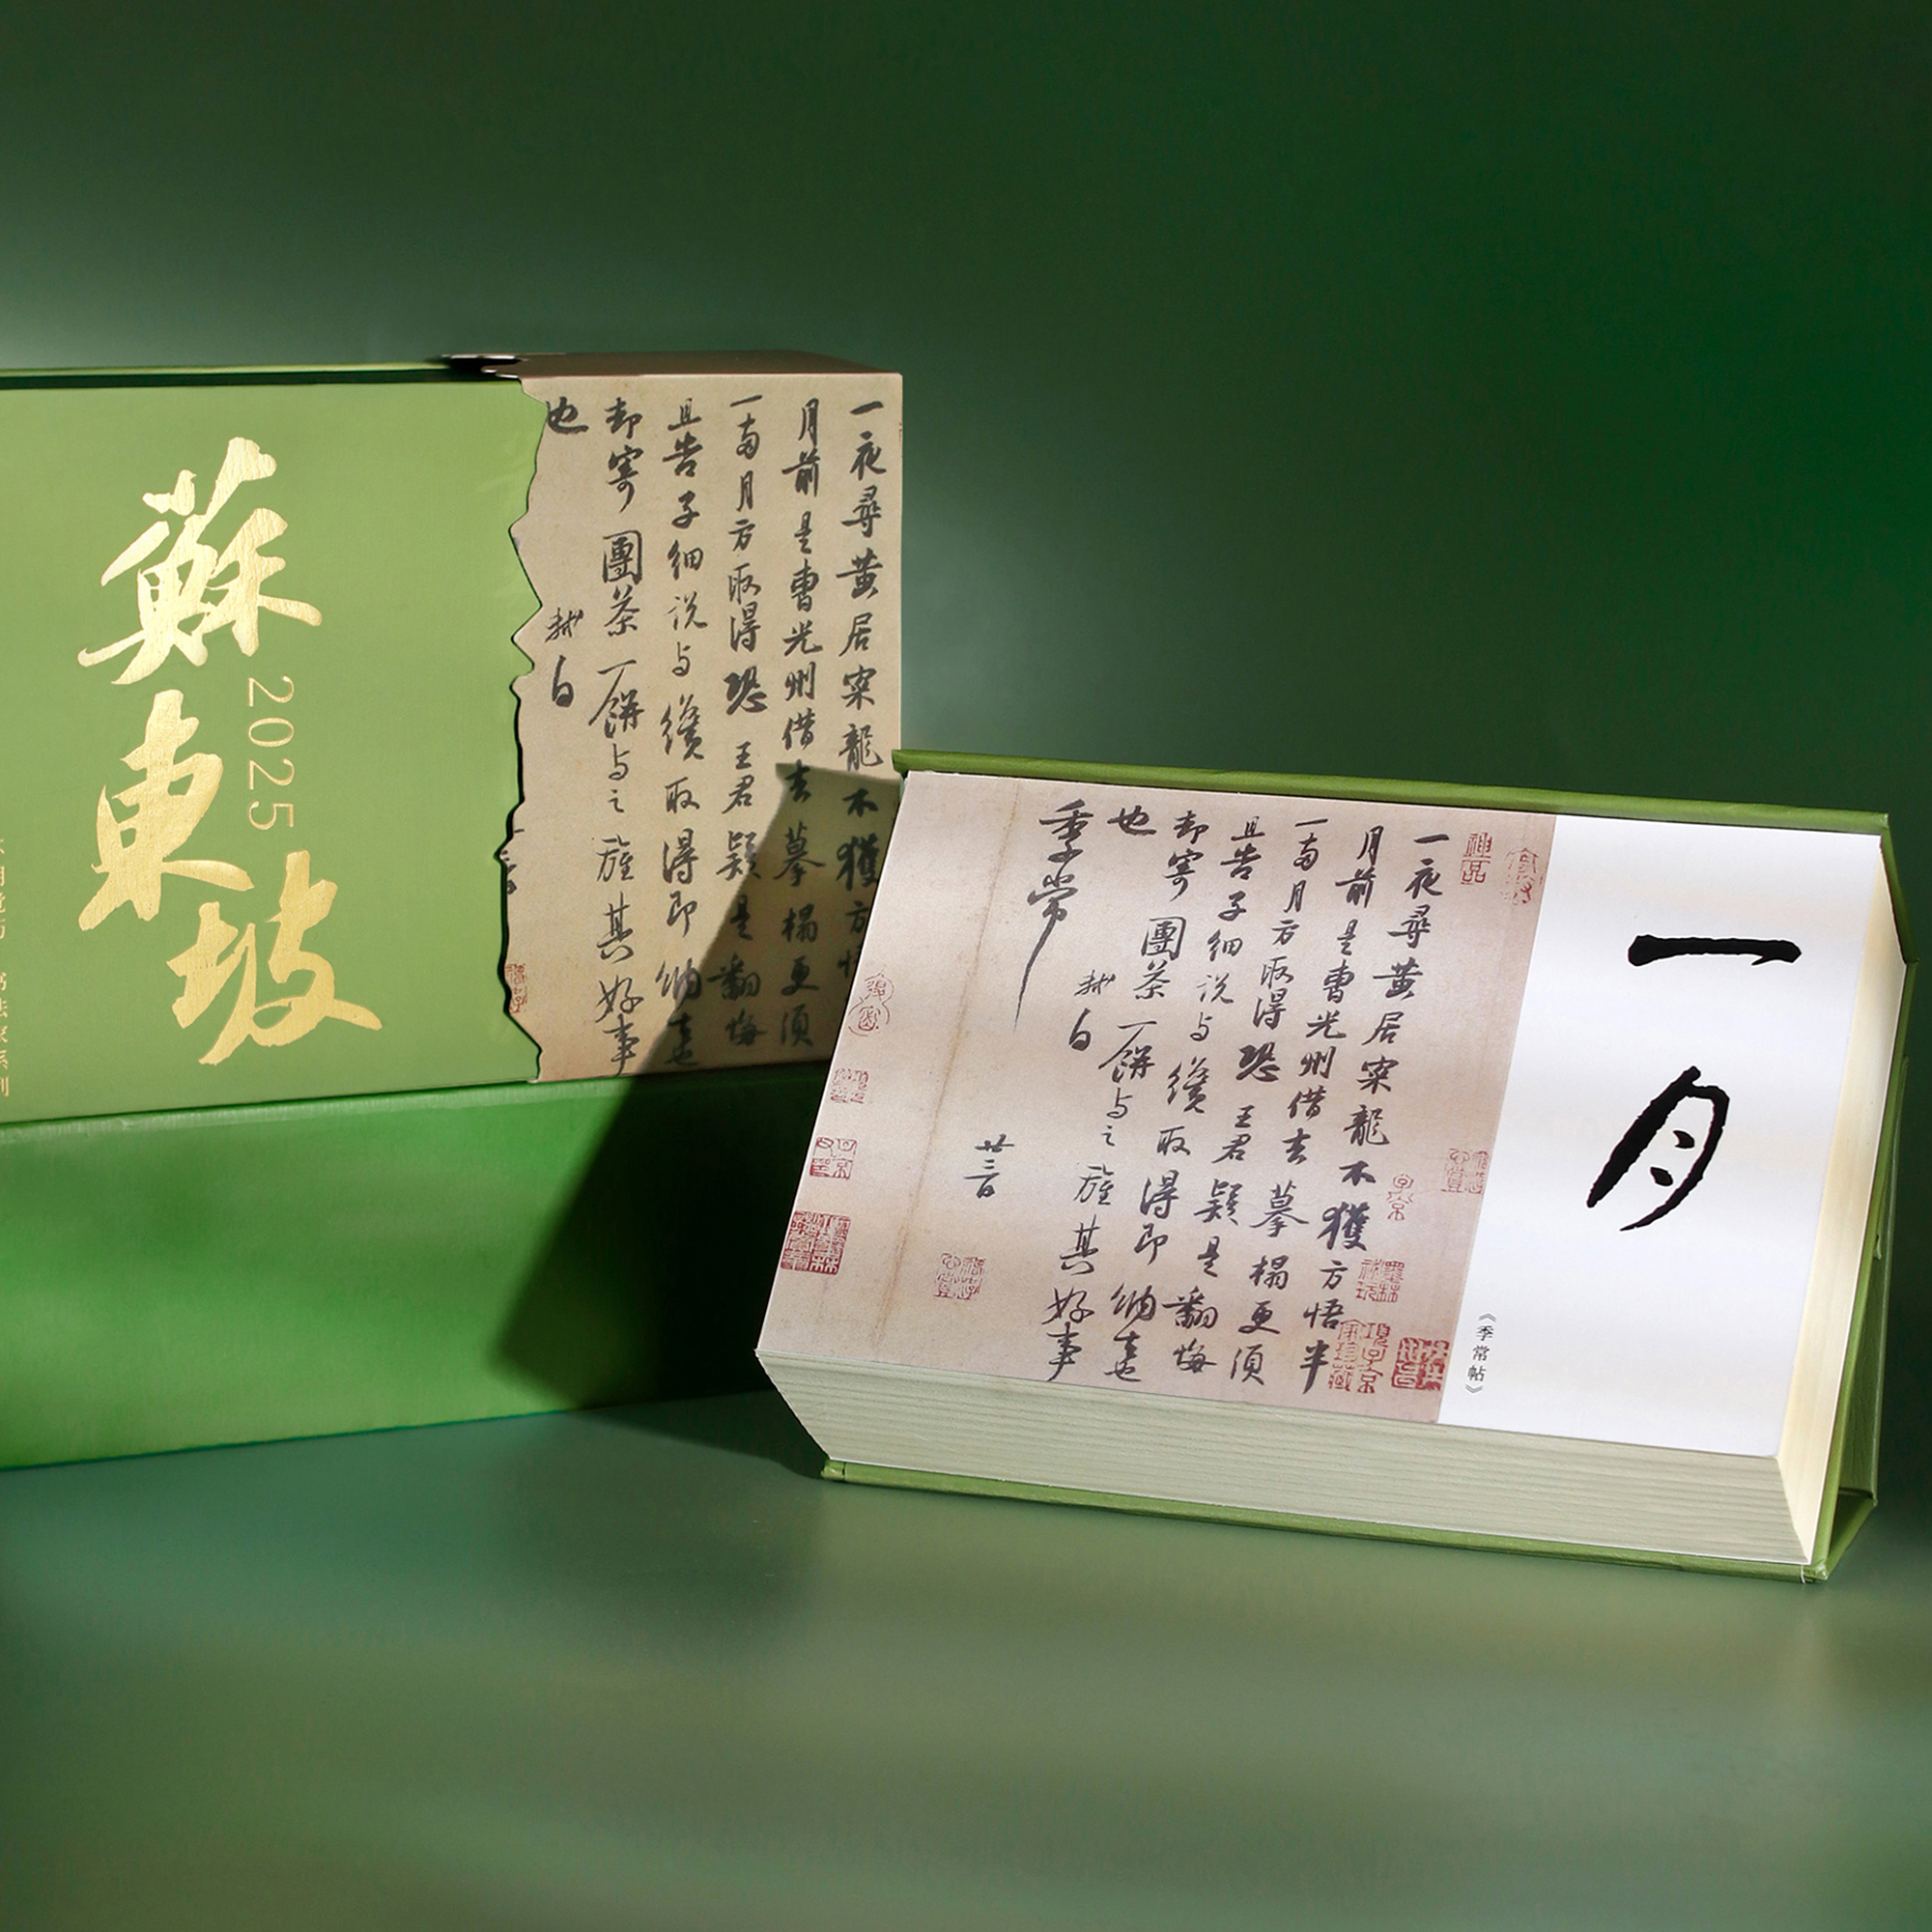 蘇東坡
2025
一夜尋黄居寀龍不獲方悟
月前是曹光州借去摹榻更須
一兩月方取得恐王君疑是翻悔
且告子細说与纔取得即納去也
却寄團茶一餅与之旌其好事
也 軾白
一月
《季常帖》
一夜尋黄居寀龍不獲方悟半
月前是曹光州借去摹榻更須
一兩月方取得恐王君疑是翻悔
且告子細说与纔取得即納去也
却寄團茶一餅与之旌其好事
也 軾白
季常
廿三日